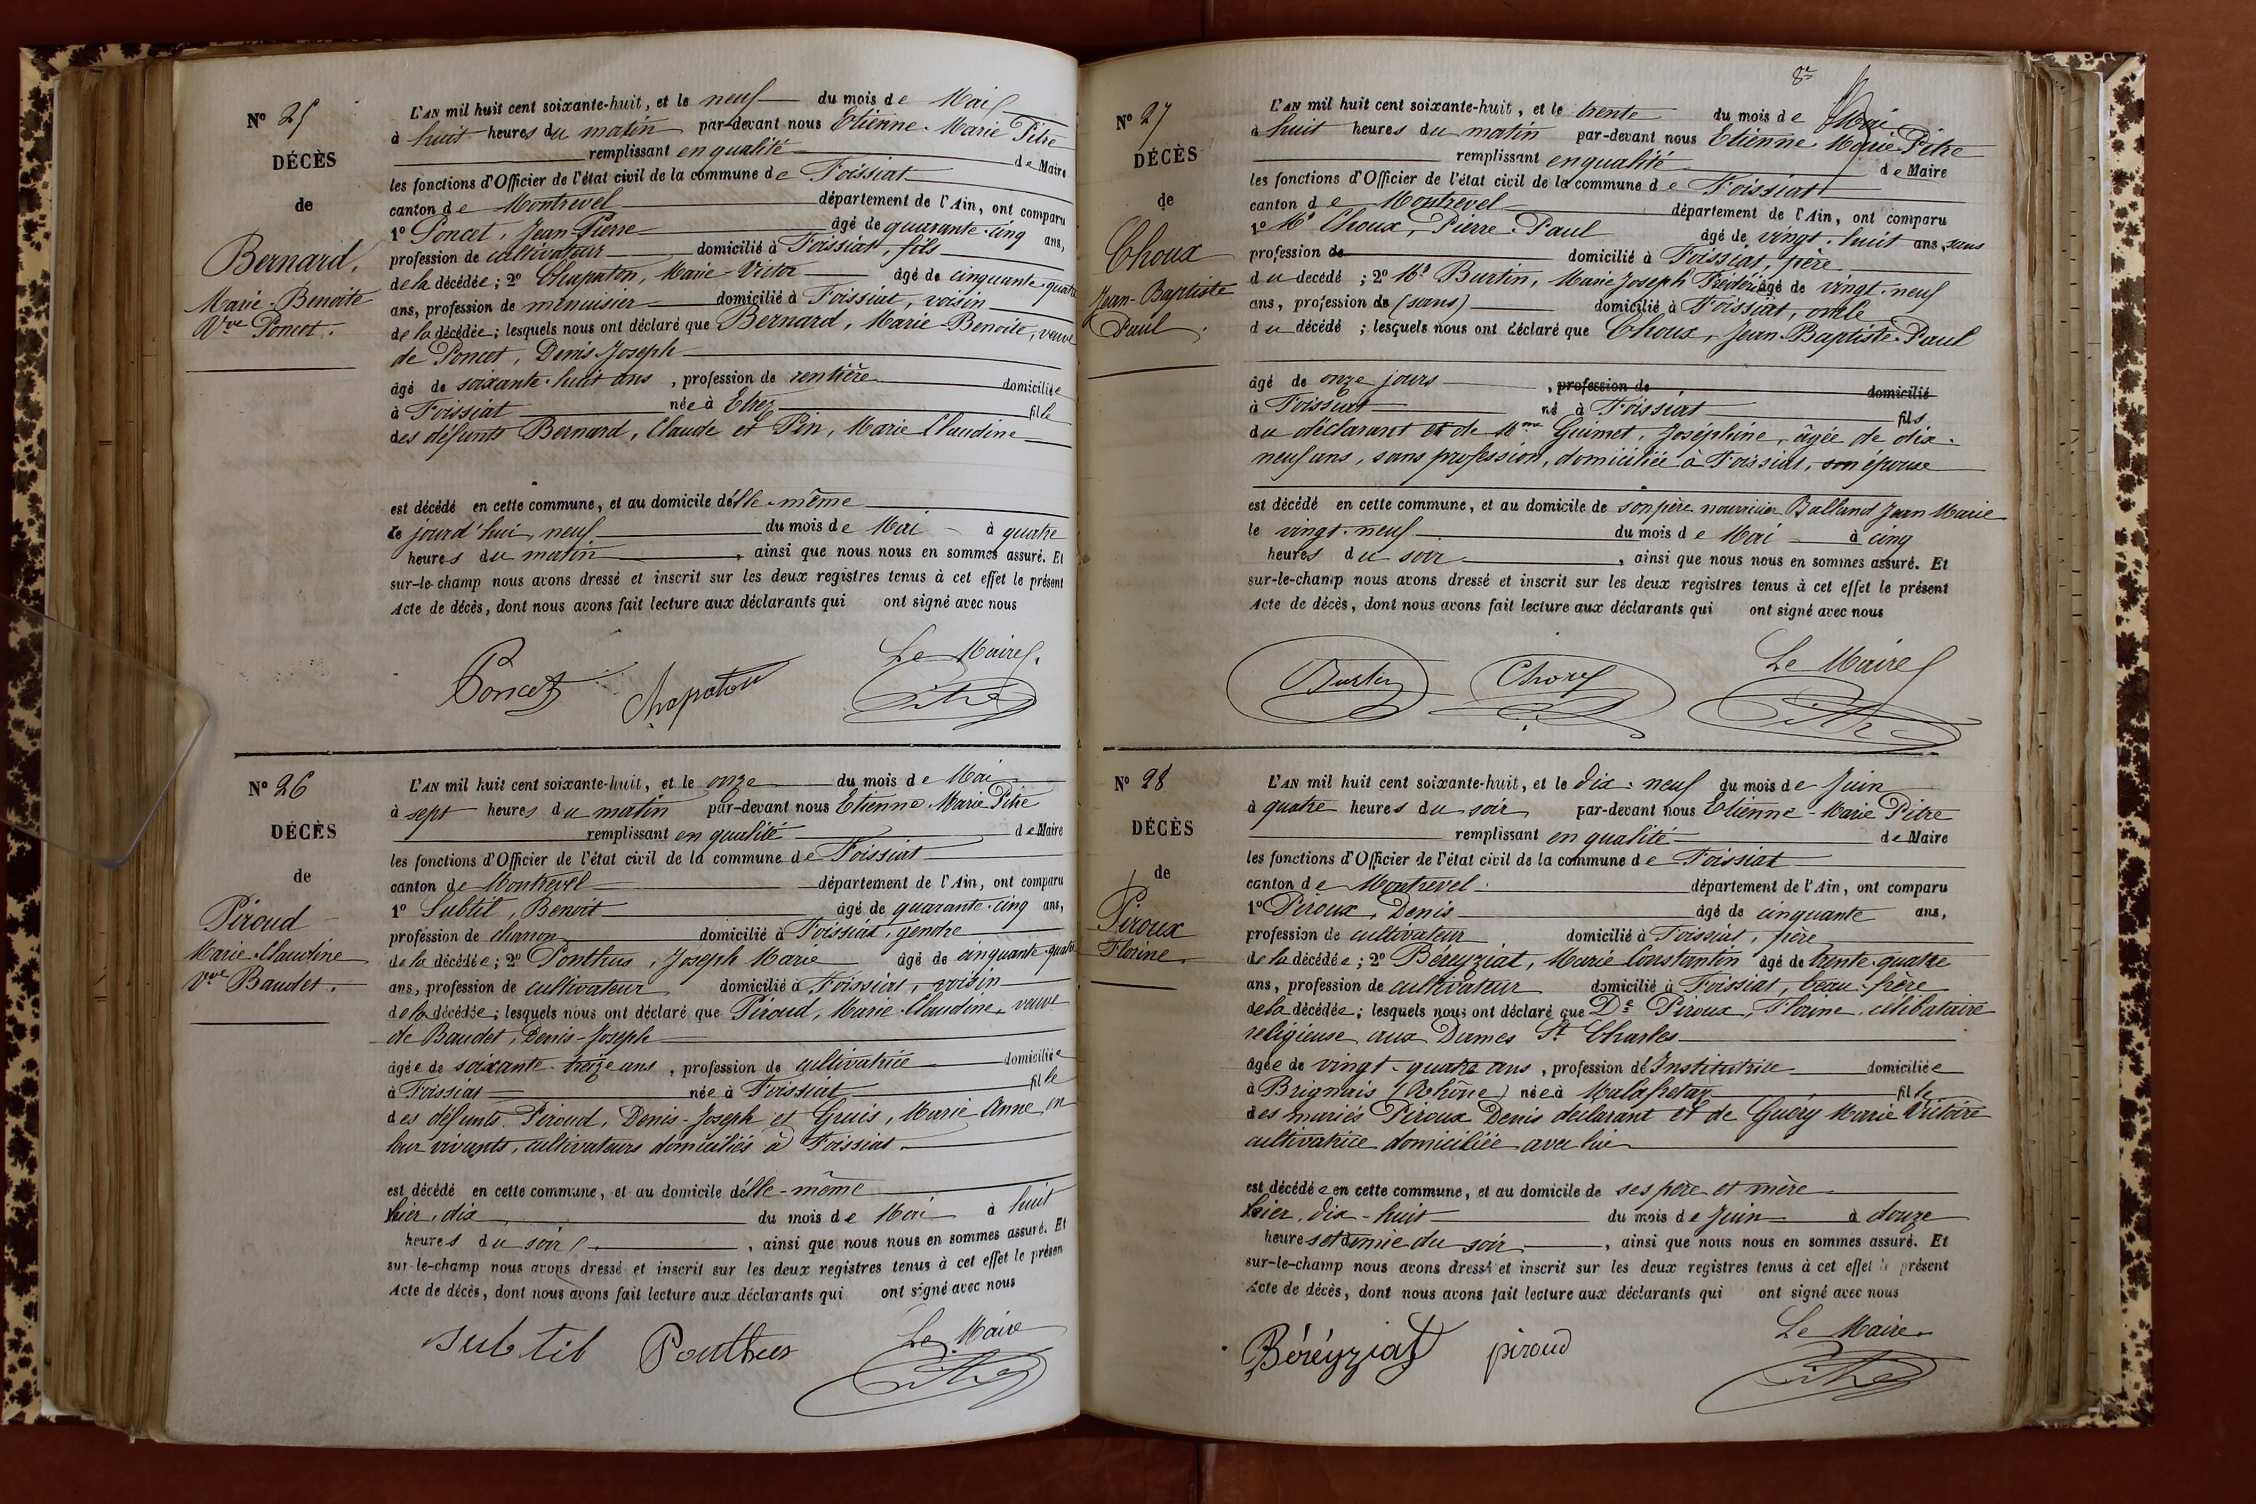 N° 25
DÉCÈS
de
Bernard,
Marie-Benoite
Vve Poncet.
L'AN mil huit cent soixante-huit, et le neuf du mois de Mai
à huit heures du matin par-devant nous Etienne-Marie Pitre
remplissant en qualité de Maire
les fonctions d'Officier de l'état civil de la commune de Foissiat
canton de Montrevel département de l'Ain, ont comparu
1° Poncet, Jean-Pierre âgé de quarante-cinq ans,
profession de cultivateur domicilié à Foissiat, fils
de la décédée; 2° Chapaton, Marie Victor âgé de cinquante-quatre
ans, profession de menuisier domicilié à Foissiat, voisin
de la décédée; lesquels nous ont déclaré que Bernard, Marie-Benoite, veuve
de Poncet, Denis-Joseph
âgé de soixante-huit ans, profession de rentière domiciliée
à Foissiat née à Etrez fille
des défunts Bernard, Claude et Pin, Marie Claudine
est décédé en cette commune, et au domicile d'elle-même
le jourd'hui, neuf du mois de Mai à quatre
heures du matin, ainsi que nous nous en sommes assuré. Et
sur-le-champ nous avons dressé et inscrit sur les deux registres tenus à cet effet le présent
Acte de décès, dont nous avons fait lecture aux déclarants qui ont signé avec nous
Le Maire,
Poncet Chapaton Pitre
N° 26
DÉCÈS
de
Piroud
Marie-Claudine
Vve Baudet.
L'AN mil huit cent soixante-huit, et le onze du mois de Mai
à sept heures du matin par-devant nous Etienne-Marie Pitre
remplissant en qualité de Maire
les fonctions d'Officier de l'état civil de la commune de Foissiat
canton de Montrevel département de l'Ain, ont comparu
1° Subtil, Benoit âgé de quarante-cinq ans,
profession de charron domicilié à Foissiat, gendre
de la décédée; 2° Ponthus, Joseph Marie âgé de cinquante-quatre
ans, profession de cultivateur domicilié à Foissiat, voisin
de la décédée; lesquels nous ont déclaré que Piroud, Marie-Claudine, veuve
de Baudet, Denis-Joseph
âgée de soixante-treize ans, profession de cultivatrice domiciliée
à Foissiat née à Foissiat fille
des défunts Piroud, Denis-Joseph et Gruis, Marie Anne, en
leur vivants, cultivateurs domiciliés à Foissiat.
est décédé en cette commune, et au domicile d'elle-même
hier, dix du mois de Mai à huit
heures du soir, ainsi que nous nous en sommes assuré. Et
sur-le-champ nous avons dressé et inscrit sur les deux registres tenus à cet effet le présen
Acte de décès, dont nous avons fait lecture aux déclarants qui ont signé avec nous
Le Maire
subtil Ponthus Pitre
N° 27
DÉCÈS
de
Choux
Jean-Baptiste
Paul.
L'AN mil huit cent soixante-huit, et le trente du mois de Mai
à huit heures du matin par-devant nous Etienne Marie Pitre
remplissant en qualité de Maire
les fonctions d'Officier de l'état civil de la commune de Foissiat
canton de Montrevel département de l'Ain, ont comparu
1° Mr Choux, Pierre-Paul âgé de vingt-huit ans, sans
profession de domicilié à Foissiat, père
du décédé; 2° Mr Burtin, Marie Joseph Frédéric âgé de vingt-neuf
ans, profession de (sans) domicilié à Foissiat, oncle
du décédé; lesquels nous ont déclaré que Choux, Jean-Baptiste-Paul
âgé de onze jours, profession de domicilié
à Foissiat né à Foissiat fils
du déclarant et de Mme Guimet, Joséphine, âgée de dix-
neuf ans, sans profession, domiciliée à Foissiat, son épouse
est décédé en cette commune, et au domicile de son père nourricier Balland Jean Marie
le vingt-neuf du mois de Mai à cinq
heures du soir, ainsi que nous nous en sommes assuré. Et
sur-le-champ nous avons dressé et inscrit sur les deux registres tenus à cet effet le présent
Acte de décès, dont nous avons fait lecture aux déclarants qui ont signé avec nous
Le Maire
Burtin Choux Pitre
N° 28
DÉCÈS
de
Piroux
Florine.
L'AN mil huit cent soixante-huit, et le dix-neuf du mois de Juin
à quatre heures du soir par-devant nous Etienne-Marie Pitre
remplissant en qualité de Maire
les fonctions d'Officier de l'état civil de la commune de Foissiat
canton de Montrevel département de l'Ain, ont comparu
1° Piroux, Denis âgé de cinquante ans,
profession de cultivateur domicilié à Foissiat, père
de la décédée; 2° Béréyziat, Marie Constantin âgé de trente-quatre
ans, profession de cultivateur domicilié à Foissiat, beau-frère
de la décédée; lesquels nous ont déclaré que De Piroux, Florine, célibataire
religieuse aux Dames St Charles
âgée de vingt-quatre ans, profession de Institutrice domiciliée
à Brignais (Rhône) née à Malafretaz fille
des mariés Piroux Denis déclarant et de Guéry Marie Victoire
cultivatrice domiciliée avec lui
est décédée en cette commune, et au domicile de ses père et mère
hier, dix-huit du mois de Juin à douze
heures et demie du soir, ainsi que nous nous en sommes assuré. Et
sur-le-champ nous avons dressé et inscrit sur les deux registres tenus à cet effet le présent
Acte de décès, dont nous avons fait lecture aux déclarants qui ont signé avec nous
Le Maire
Béréyziat piroud Pitre